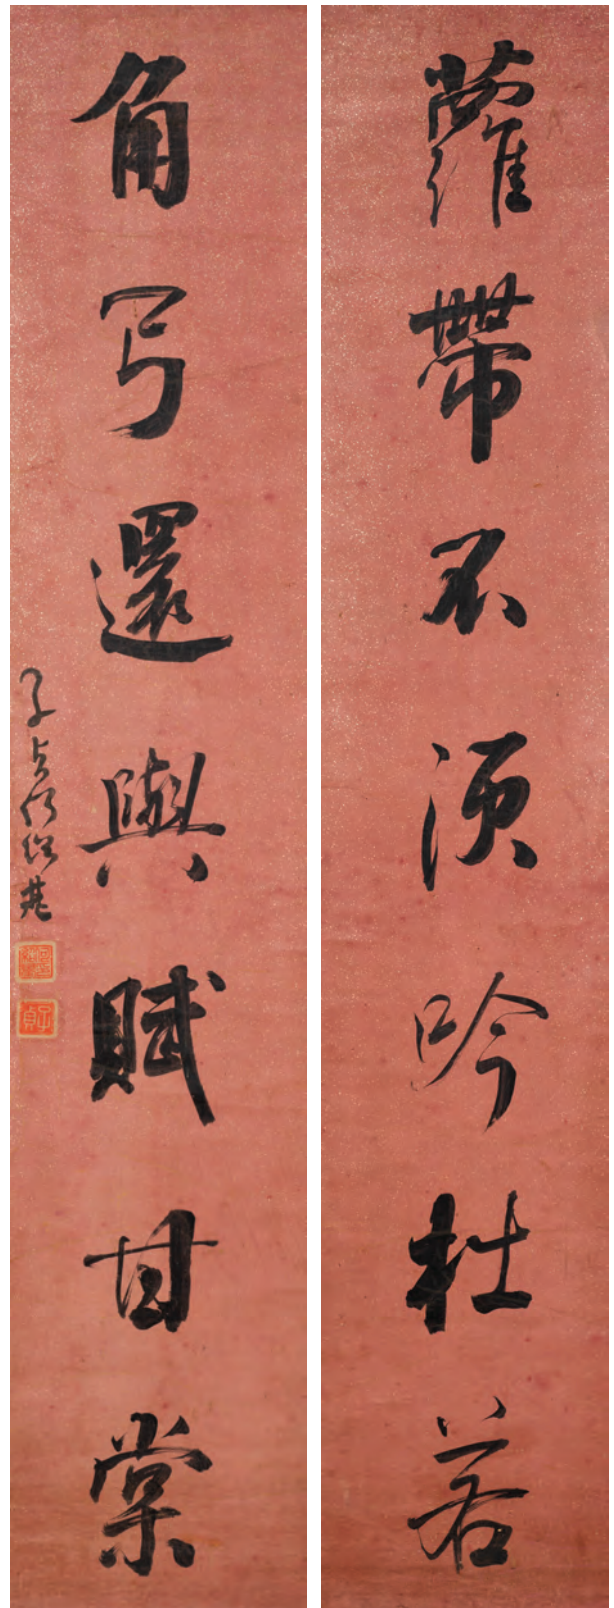 蘿帶不須吟杜若
角弓還與賦甘棠
子貞何紹基
子貞